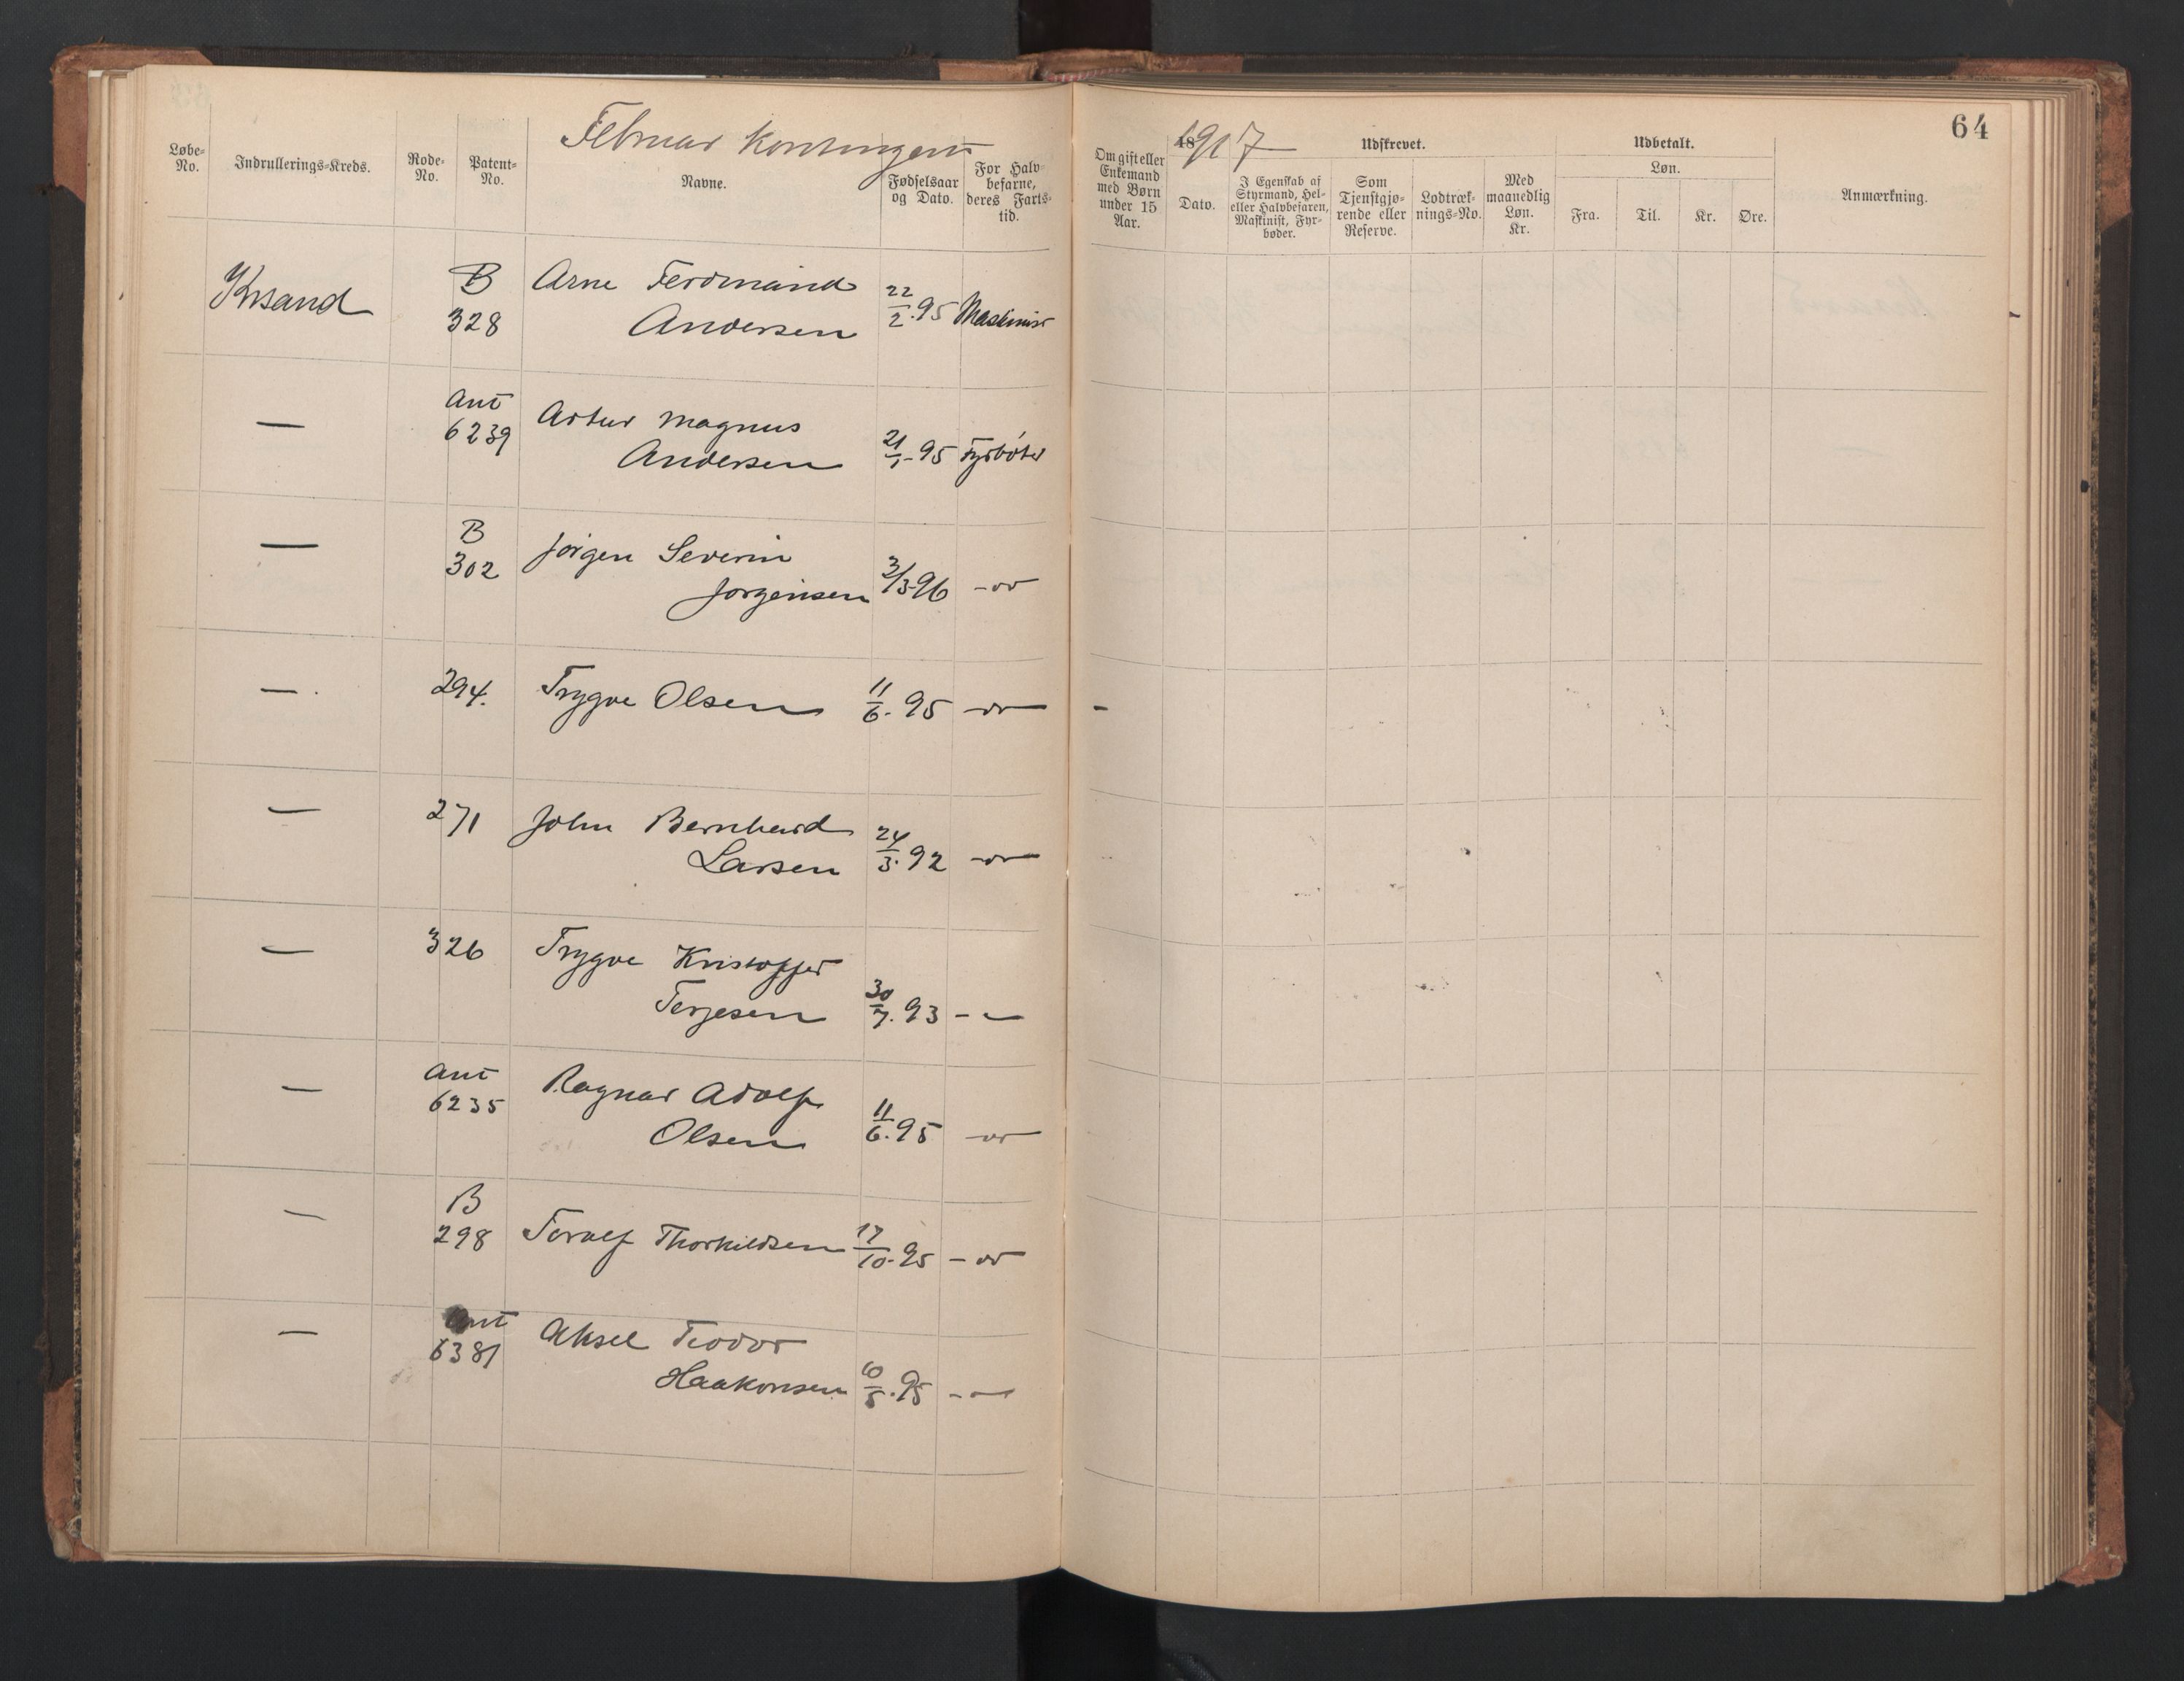 Februar Kontingent
Løbe-No.
Indrullerings-Kreds.
Rode-No.
Patent-No.
Navne.
Fødselsaar og Dato.
For Halvbefarne, deres Fartstid.
Krsand B 328 Arne Ferdinand Andersen 22/2.95 Maskinist
— Ant 6239 Artur Magnus Andersen 21/1-95 Fyrbøter
— B 302 Jørgen Severin Jørgensen 3/3-96 -"-
— 294. Trygve Olsen 11/6.95 -"-
— 271 John Bernhard Larsen 24/3.92 -"-
— 326 Trygve Kristoffer Terjesen 30/7.93 - -
— Ant 6235 Ragnar Adolf Olsen 11/6.95 -"-
— B 298 Torolf Thorkildsen 17/10.95 -"-
— Ant 6381 Aksel Teodor Haakonsen 10/5.95 -"-
64
Om gift eller Enkemand med Børn under 15 Aar.
1917
18
Dato.
Udskrevet.
I Egenskab af Styrmand, Hel- eller Halvbefaren, Maskinist, Fyrbøder.
Som Tjenstgjørende eller Reserve.
Lodtræknings-No.
Med maanedlig Løn. Kr.
Udbetalt.
Løn.
Fra.
Til.
Kr.
Øre.
Anmærkning.